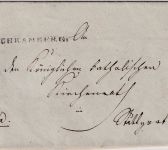 SCHRAMBERG. An
den Königlichen katholischen
Kirchenrath
in
Stuttgart